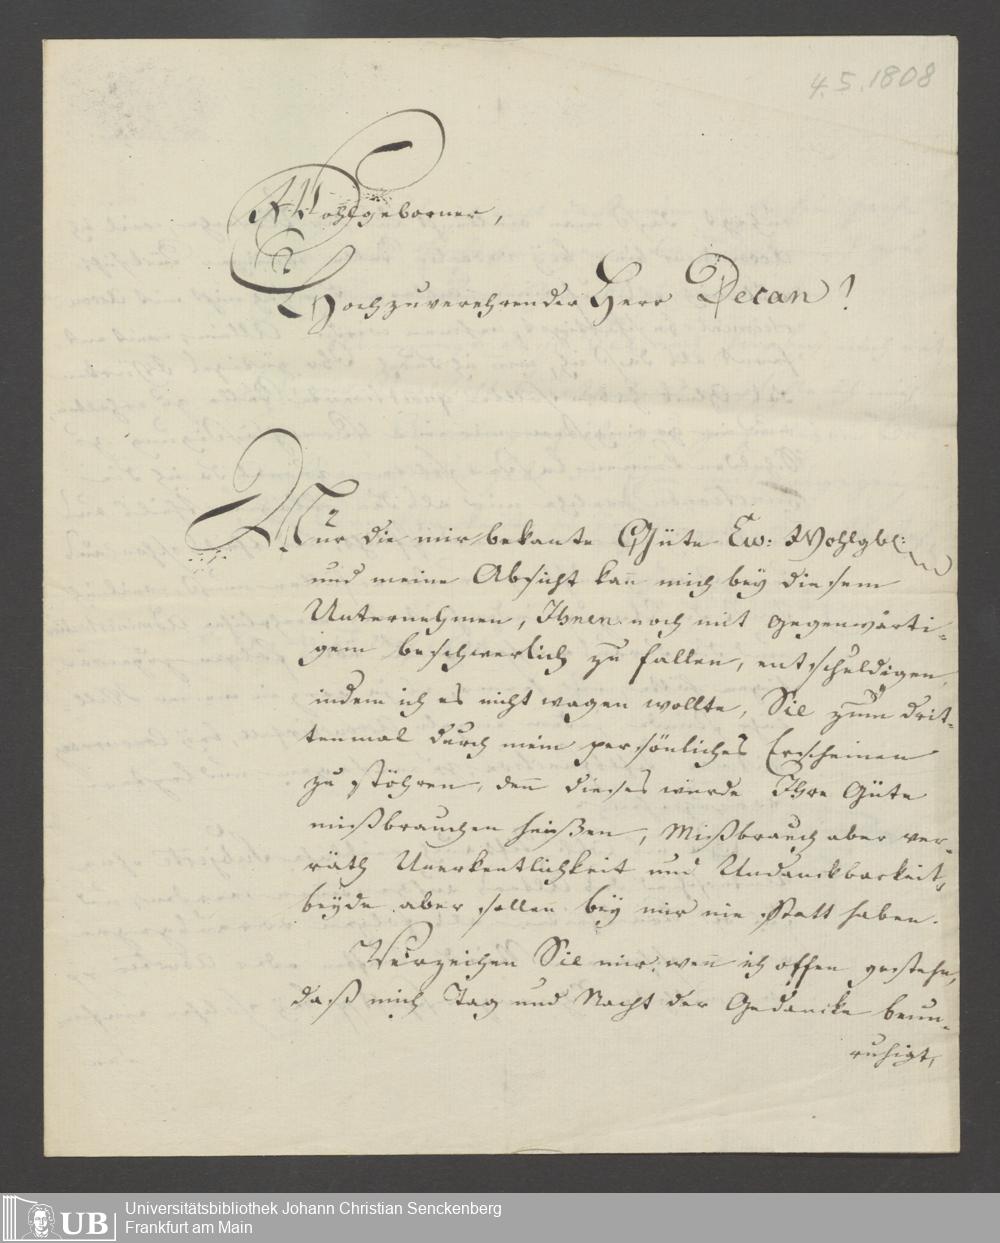 4.5.1808
Wohlgeborner,
Hochzuverehrender Herr Decan!
Nur die mir bekante Güte Ew: Wohlgbl:
und meine Absicht kan̄ mich bey diesem
Unternehmen, Ihnen noch mit gegenwärti-
gem beschwerlich zu fallen, entschuldigen,
indem ich es nicht wagen wollte, Sie zum drit-
tenmal durch mein persönliches Erscheinen
zu stöhren, den̄ dieses würde Ihre Güte
mißbrauchen heißen, Mißbrauch aber ver-
räth Unerkentlichkeit und Undanckbarkeit,
beyde aber sollen bey mir nie Statt haben.
Verzeihen Sie mir, wen̄ ich offen gestehe,
daß mich Tag und Nacht der Gedancke beun-
ruhigt,
UB
Universitätsbibliothek Johann Christian Senckenberg
Frankfurt am Main